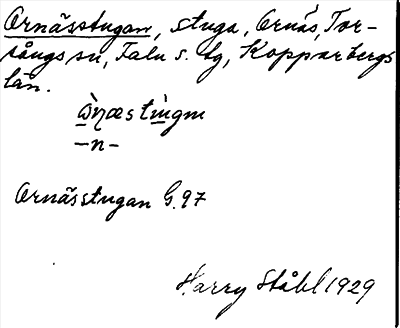 Ornässtugan, stuga, Ornäs, Tor-
sångs sn, Falu s. tg, Kopparbergs
län.
-n-
Ornässtugan G.97
Harry Ståhl 1929